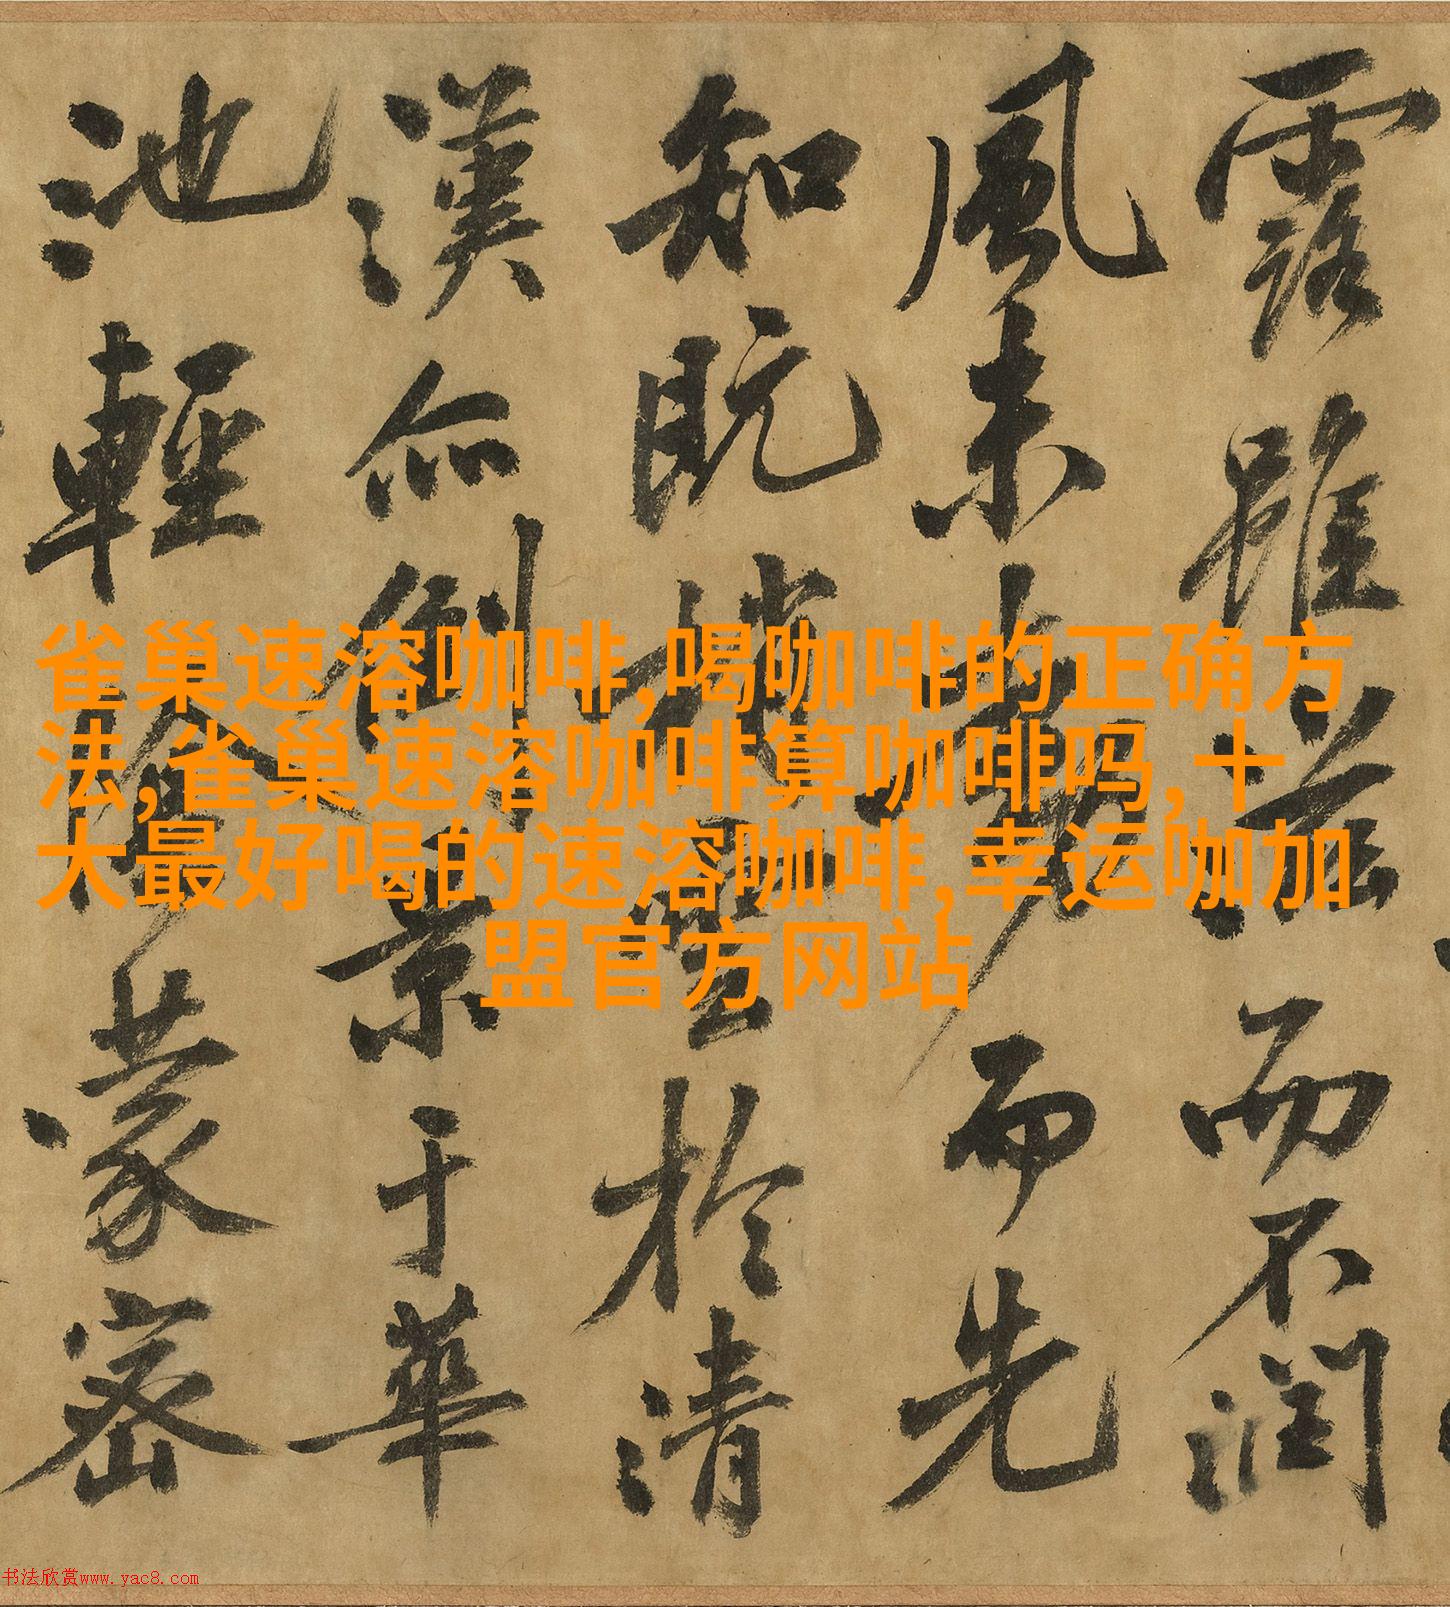 露雖滋而不潤
風未動而先
知既梢雲於清
漢亦倒景于華
池輕陰蒙密
雀巢速溶咖啡,喝咖啡的正确方
法,雀巢速溶咖啡算咖啡吗,十
大最好喝的速溶咖啡,幸运咖加
盟官方网站
书法欣赏www.yac8.com